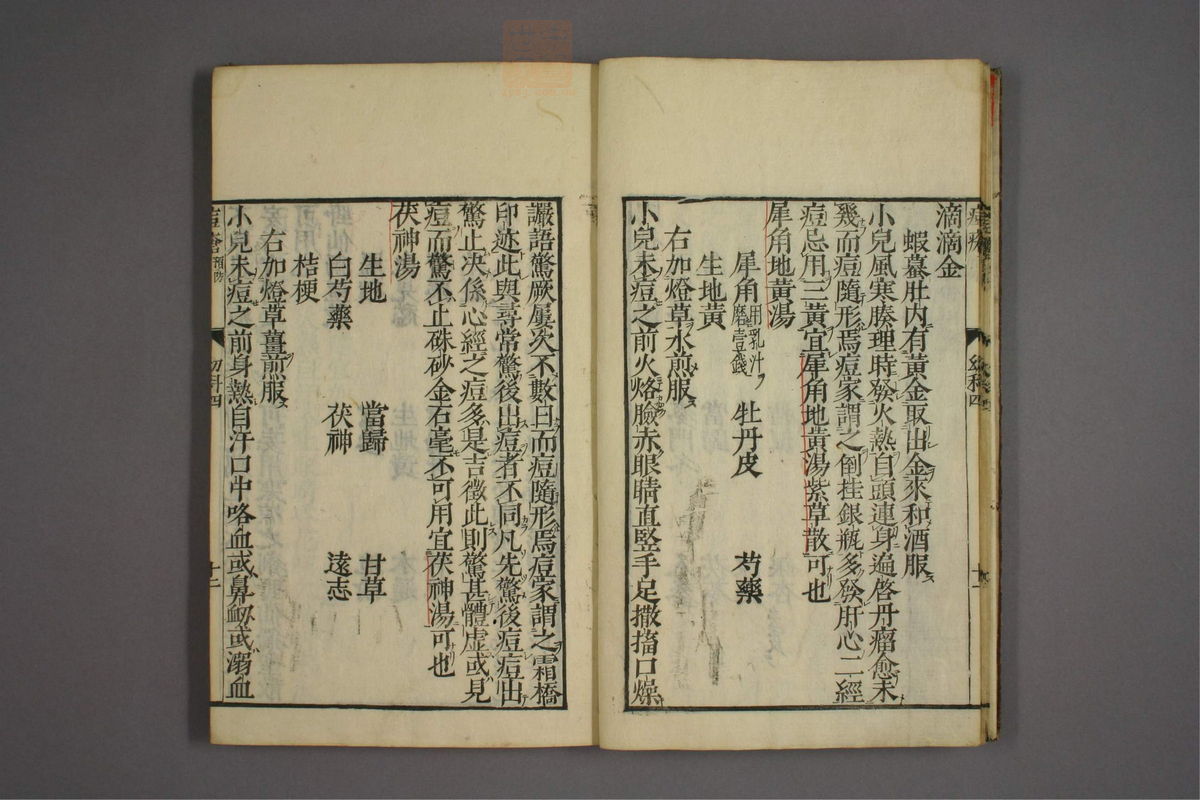 滴滴金
蝦蟇肚内有黃金取出金來和酒服
小兒風寒腠理時發火熱自頭連身遍啓丹瘤愈未
幾而痘隨形焉痘家謂之倒挂銀瓶多發肝心二經
痘忌用三黃宜犀角地黃湯紫草散可也
犀角地黃湯
犀角 用乳汁磨壹錢 牡丹皮 芍藥
生地黃
右加燈草水煎服
小兒未痘之前火烙臉赤眼睛直竪手足撒搐口燥
讝語驚厥屢次不數日而痘隨形焉痘家謂之霜橋
印迹此與尋常驚後出痘者不同凡先驚後痘痘出
驚止决係心經之痘多是吉徵此則驚甚體虚或見
痘而驚不止硃砂金石毫不可用宜茯神湯可也
茯神湯
生地 當歸 甘草
白芍藥 茯神 遠志
桔梗
右加燈草薑煎服
小兒未痘之前身熱自汗口中咯血或鼻衂或溺血
痘瘡 預防 幼科四 十二